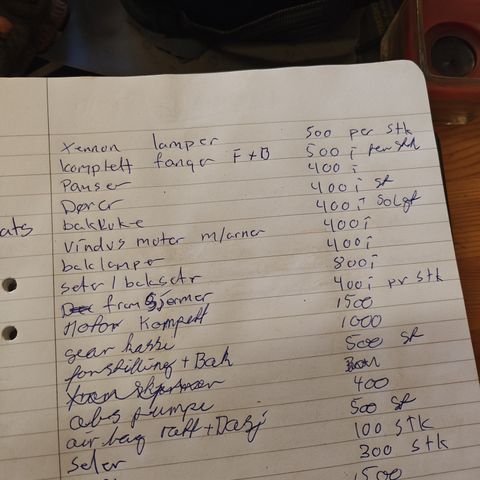 xennon lamper 500 per stk
komplett fanger F+B 500,- per stk
Panser 400,-
Dører 400,- st
bakluke 400,- Solgt
vindus motor m/armer 400,-
baklamper 400,-
seter / baksetr 800,-
from Sjermer 400,- pr stk
Motor Kompett 1500
gear kasse 1000
forstilling + Bak 500 st
abs pumpe 400
air bag ratt + Dasj 500 st
seler 100 stk
300 stk
1500
ats